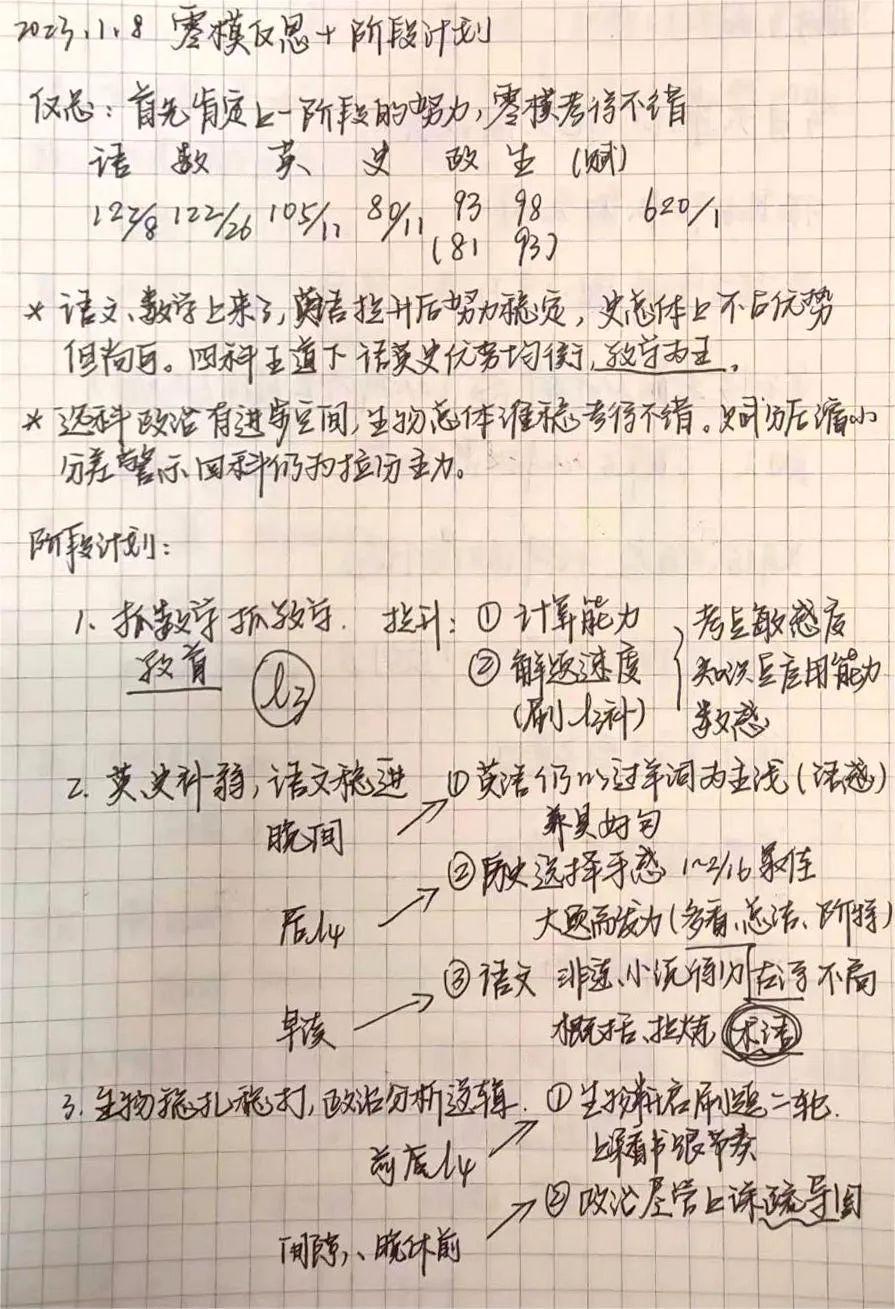 2023.1.8 零模反思+阶段计划
反思:首先肯定上一阶段的努力,零模考得不错
语 数 英 史 政 生 (赋)
122/8 122/26 105/17 80/11 93 98 620/1
(81 93)
* 语文、数学上来了,英语拉升后努力稳定,史总体上不占优势
但尚可。四科王道下语英史优势均衡,数学为主。
* 选科政治有进步空间,生物总体难稳考得不错。赋分后缩小
分差警示四科仍为拉分主力。
阶段计划:
1. 抓数学抓数学. 拉升:① 计算能力 考点敏感度
② 解题速度 知识点应用能力
(刷 补) 数感
2. 英史补弱,语文稳进 ①英语仍以过单词为主线(语感)
晚间 兼具好句
②历史选择手感 1~2/16最佳
后 大题需发力(多看、总结、阶特)
③语文 非连、小说得分在浮不高
早读 概括、提炼 术语
3. 生物稳扎稳打,政治分析逻辑. ①生物新启刷题二轮.
前后 上课看书跟节奏
②政治尽管上课 导图
间隙、晚休前